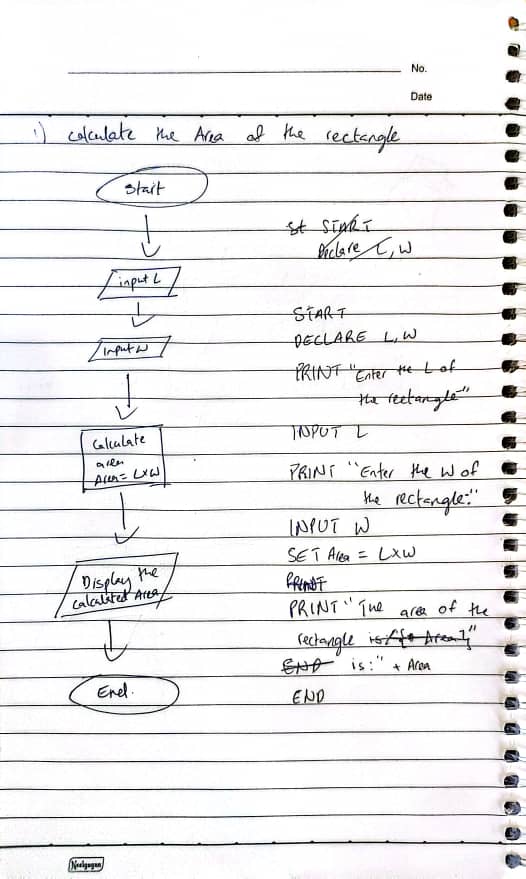 No.
Date
1) calculate the Area of the rectangle
Start
input L
input W
Calculate
area
Area = LxW
Display the
calculated Area
End.
St START
Declare L, W
START
DECLARE L, W
PRINT "Enter the L of
the rectangle"
INPUT L
PRINT "Enter the W of
the rectangle:"
INPUT W
SET Area = LxW
PRINT
PRINT "The area of the
rectangle is Area"
END is:" + Area
END
Neelgagan